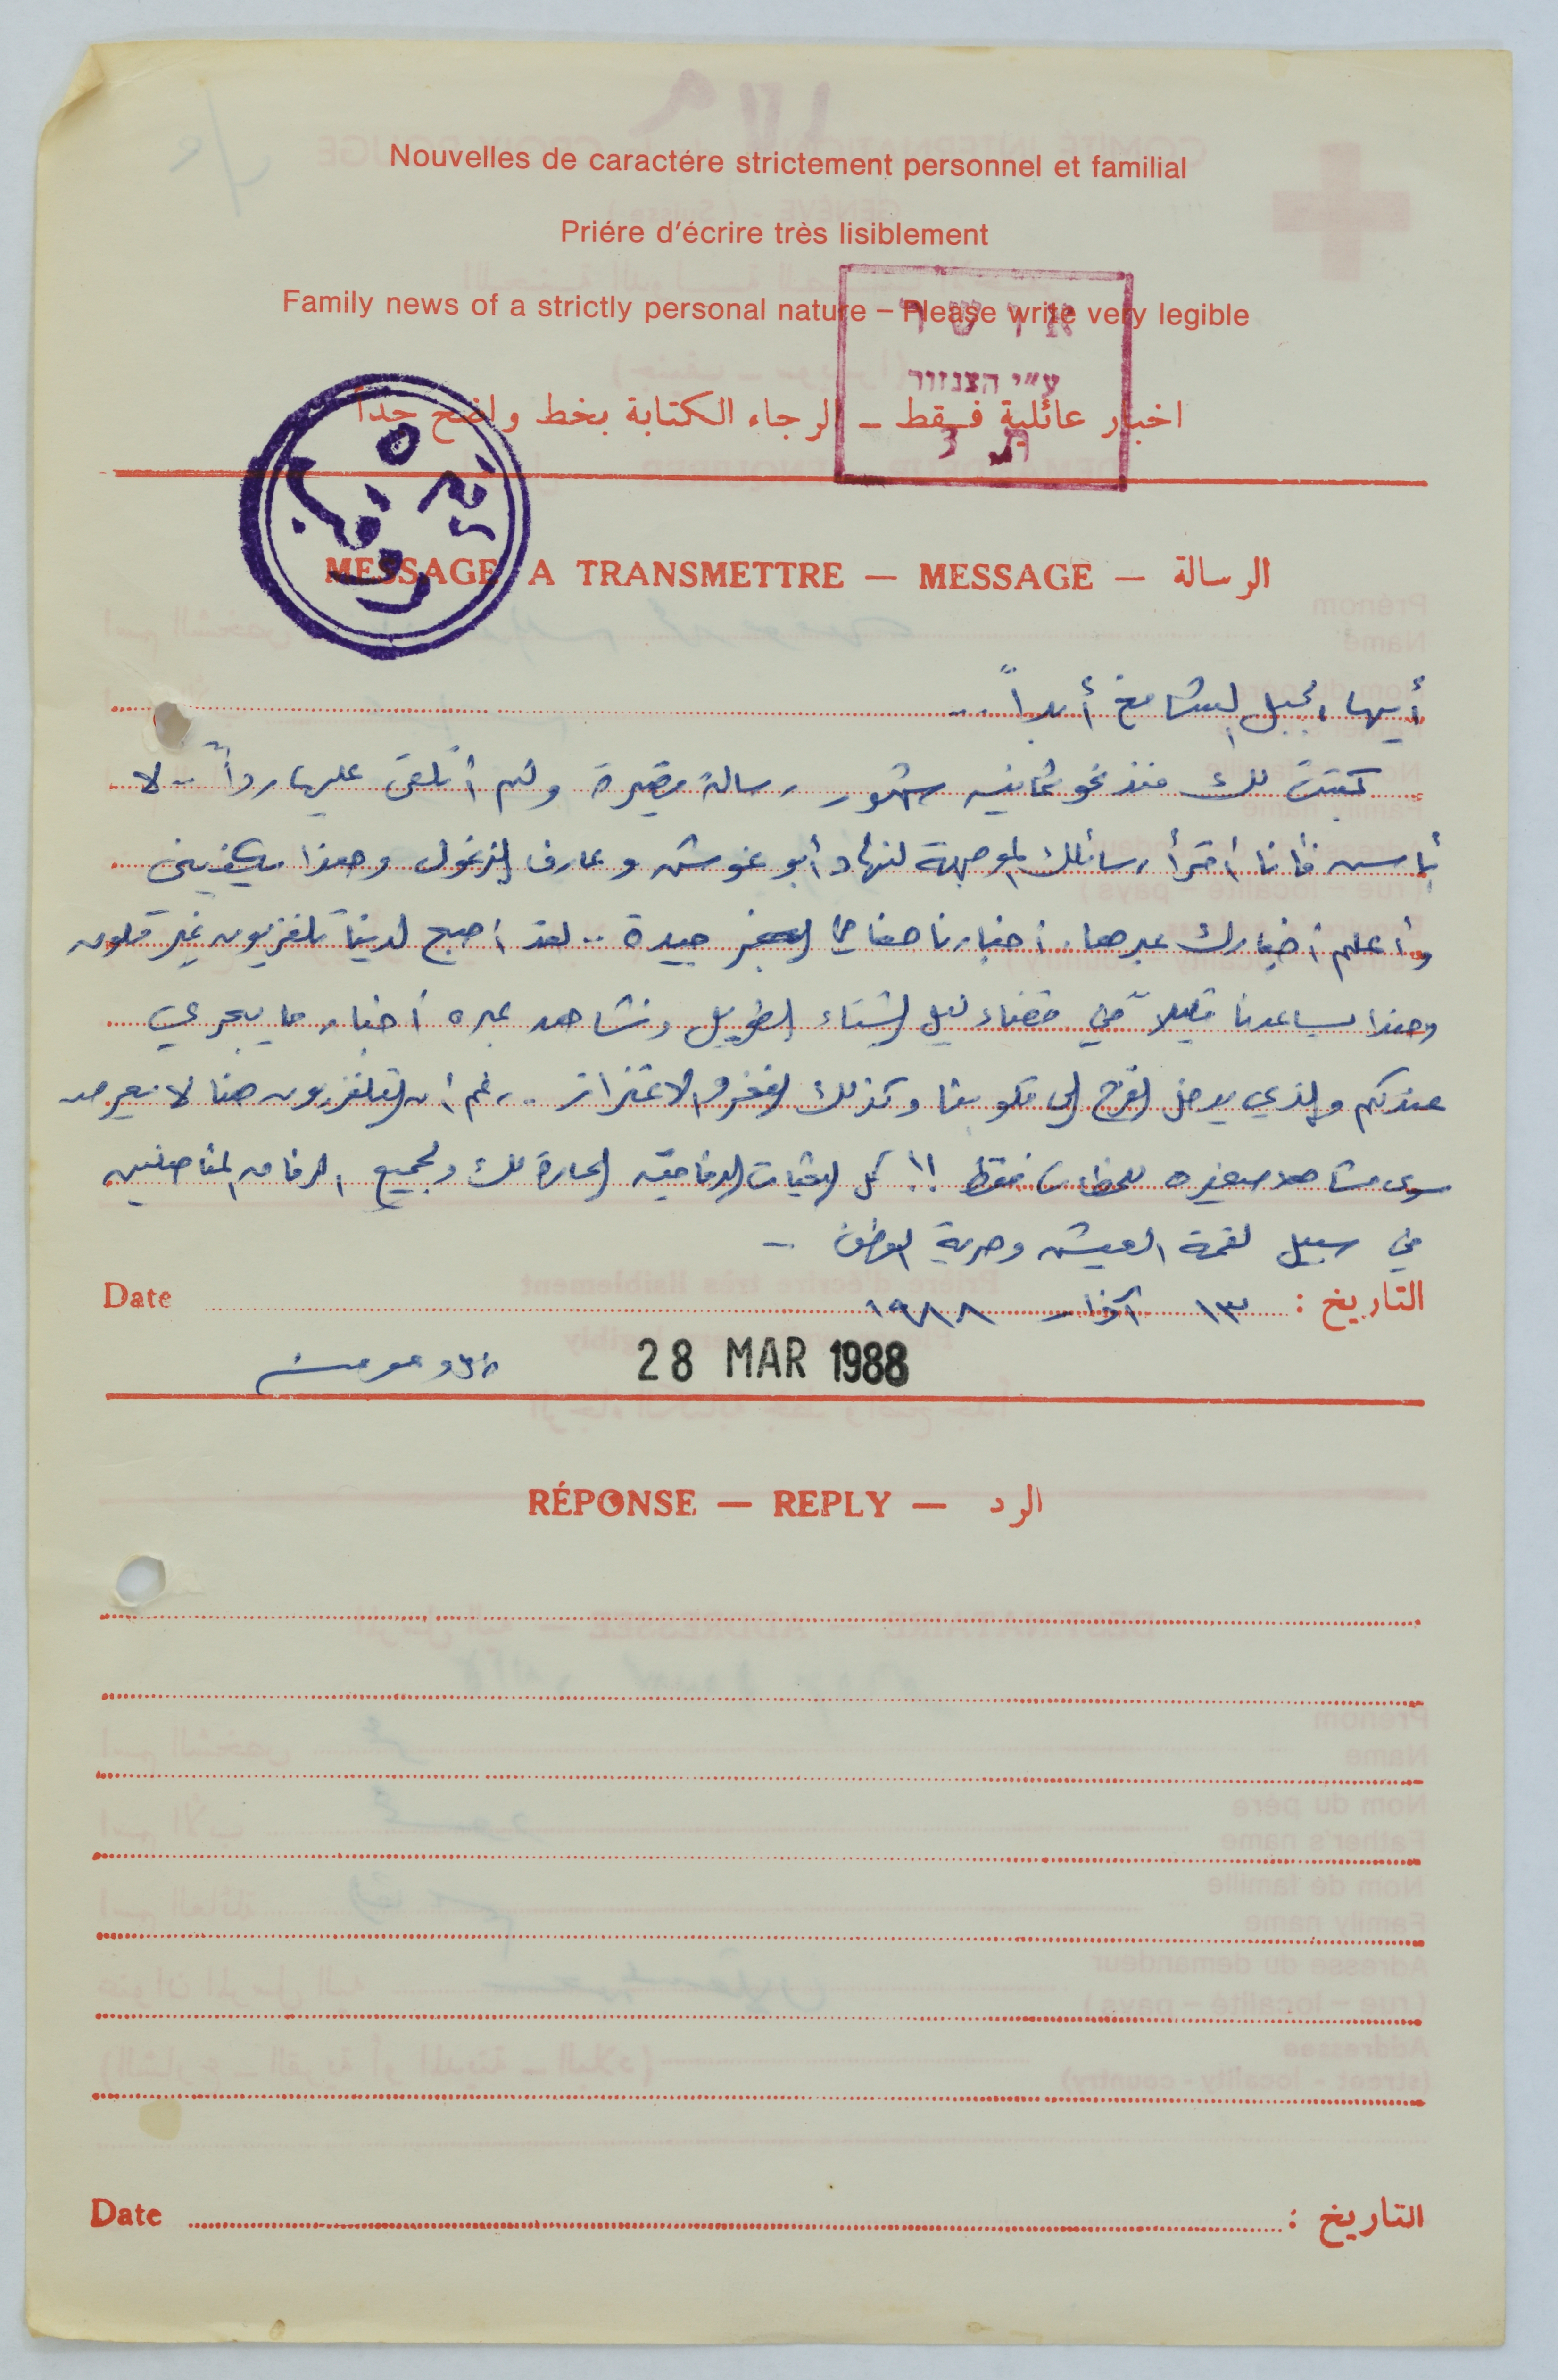 Nouvelles de caractére strictement personnel et familial
Priére d'écrire très lisiblement
Family news of a strictly personal nature – Please write very legible
אושר
ע"י הצנזור
اخبار عائلية فقط – الرجاء الكتابة بخط واضح جداً
MESSAGE A TRANSMETTRE — MESSAGE — الرسالة
أيها الجبل الشامخ أبداً ..
كتبت لك منذ نحو ثمانية شهور رسالة قصيرة ولم أتلقى عليها رداً .. لا
بأس فأنا أقرأ رسائلك الموجهة لنهاد أبو غوش وعارف الزغول وهذا يكفيني
وأعلم أخبارك عبرها. أخبارنا هنا في السجن جيدة .. لقد أصبح لدينا تلفزيون غير ملون
وهذا يساعدنا قليلاً في قضاء ليل الشتاء الطويل ونشاهد عبره أخبار ما يجري
عندكم والذي يدخل الفرح إلى قلوبنا وكذلك الفخر والاعتزاز .. رغم أن التلفزيون هنا لا يعرض
سوى مشاهد صغيره للحظات فقط !! كل التحيات الرفاقية الحارة لك ولجميع الرفاق المناضلين
في سبيل لقمة العيش وحرية الوطن –
Date التاريخ : ١٣ آذار ١٩٨٨
28 MAR 1988
RÉPONSE — REPLY — الرد
Date التاريخ :